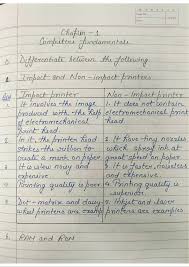 Chapter - 1
Computers fundamentals
Differentiate between the following
Impact and Non-impact printers
Impact printer
Non-Impact printer
1. It involves the image
produced with the help
of electromechanical
print head
1. It does not contain
electromechanical print
head
2. In it, the printer head
strikes the ribbon to
create a mark on paper
2. It have tiny nozzles
which sprof ink at
great speed on paper
3. It is slow noisy and
expensive.
3. It is faster, noiseless
and expensive.
4. Printing quality is poor
4. Printing quality is
superior.
5. Dot-matrix and daisy
wheel printers are exampl
5. Inkjet and laser
printers are examples
b. RAM and ROM